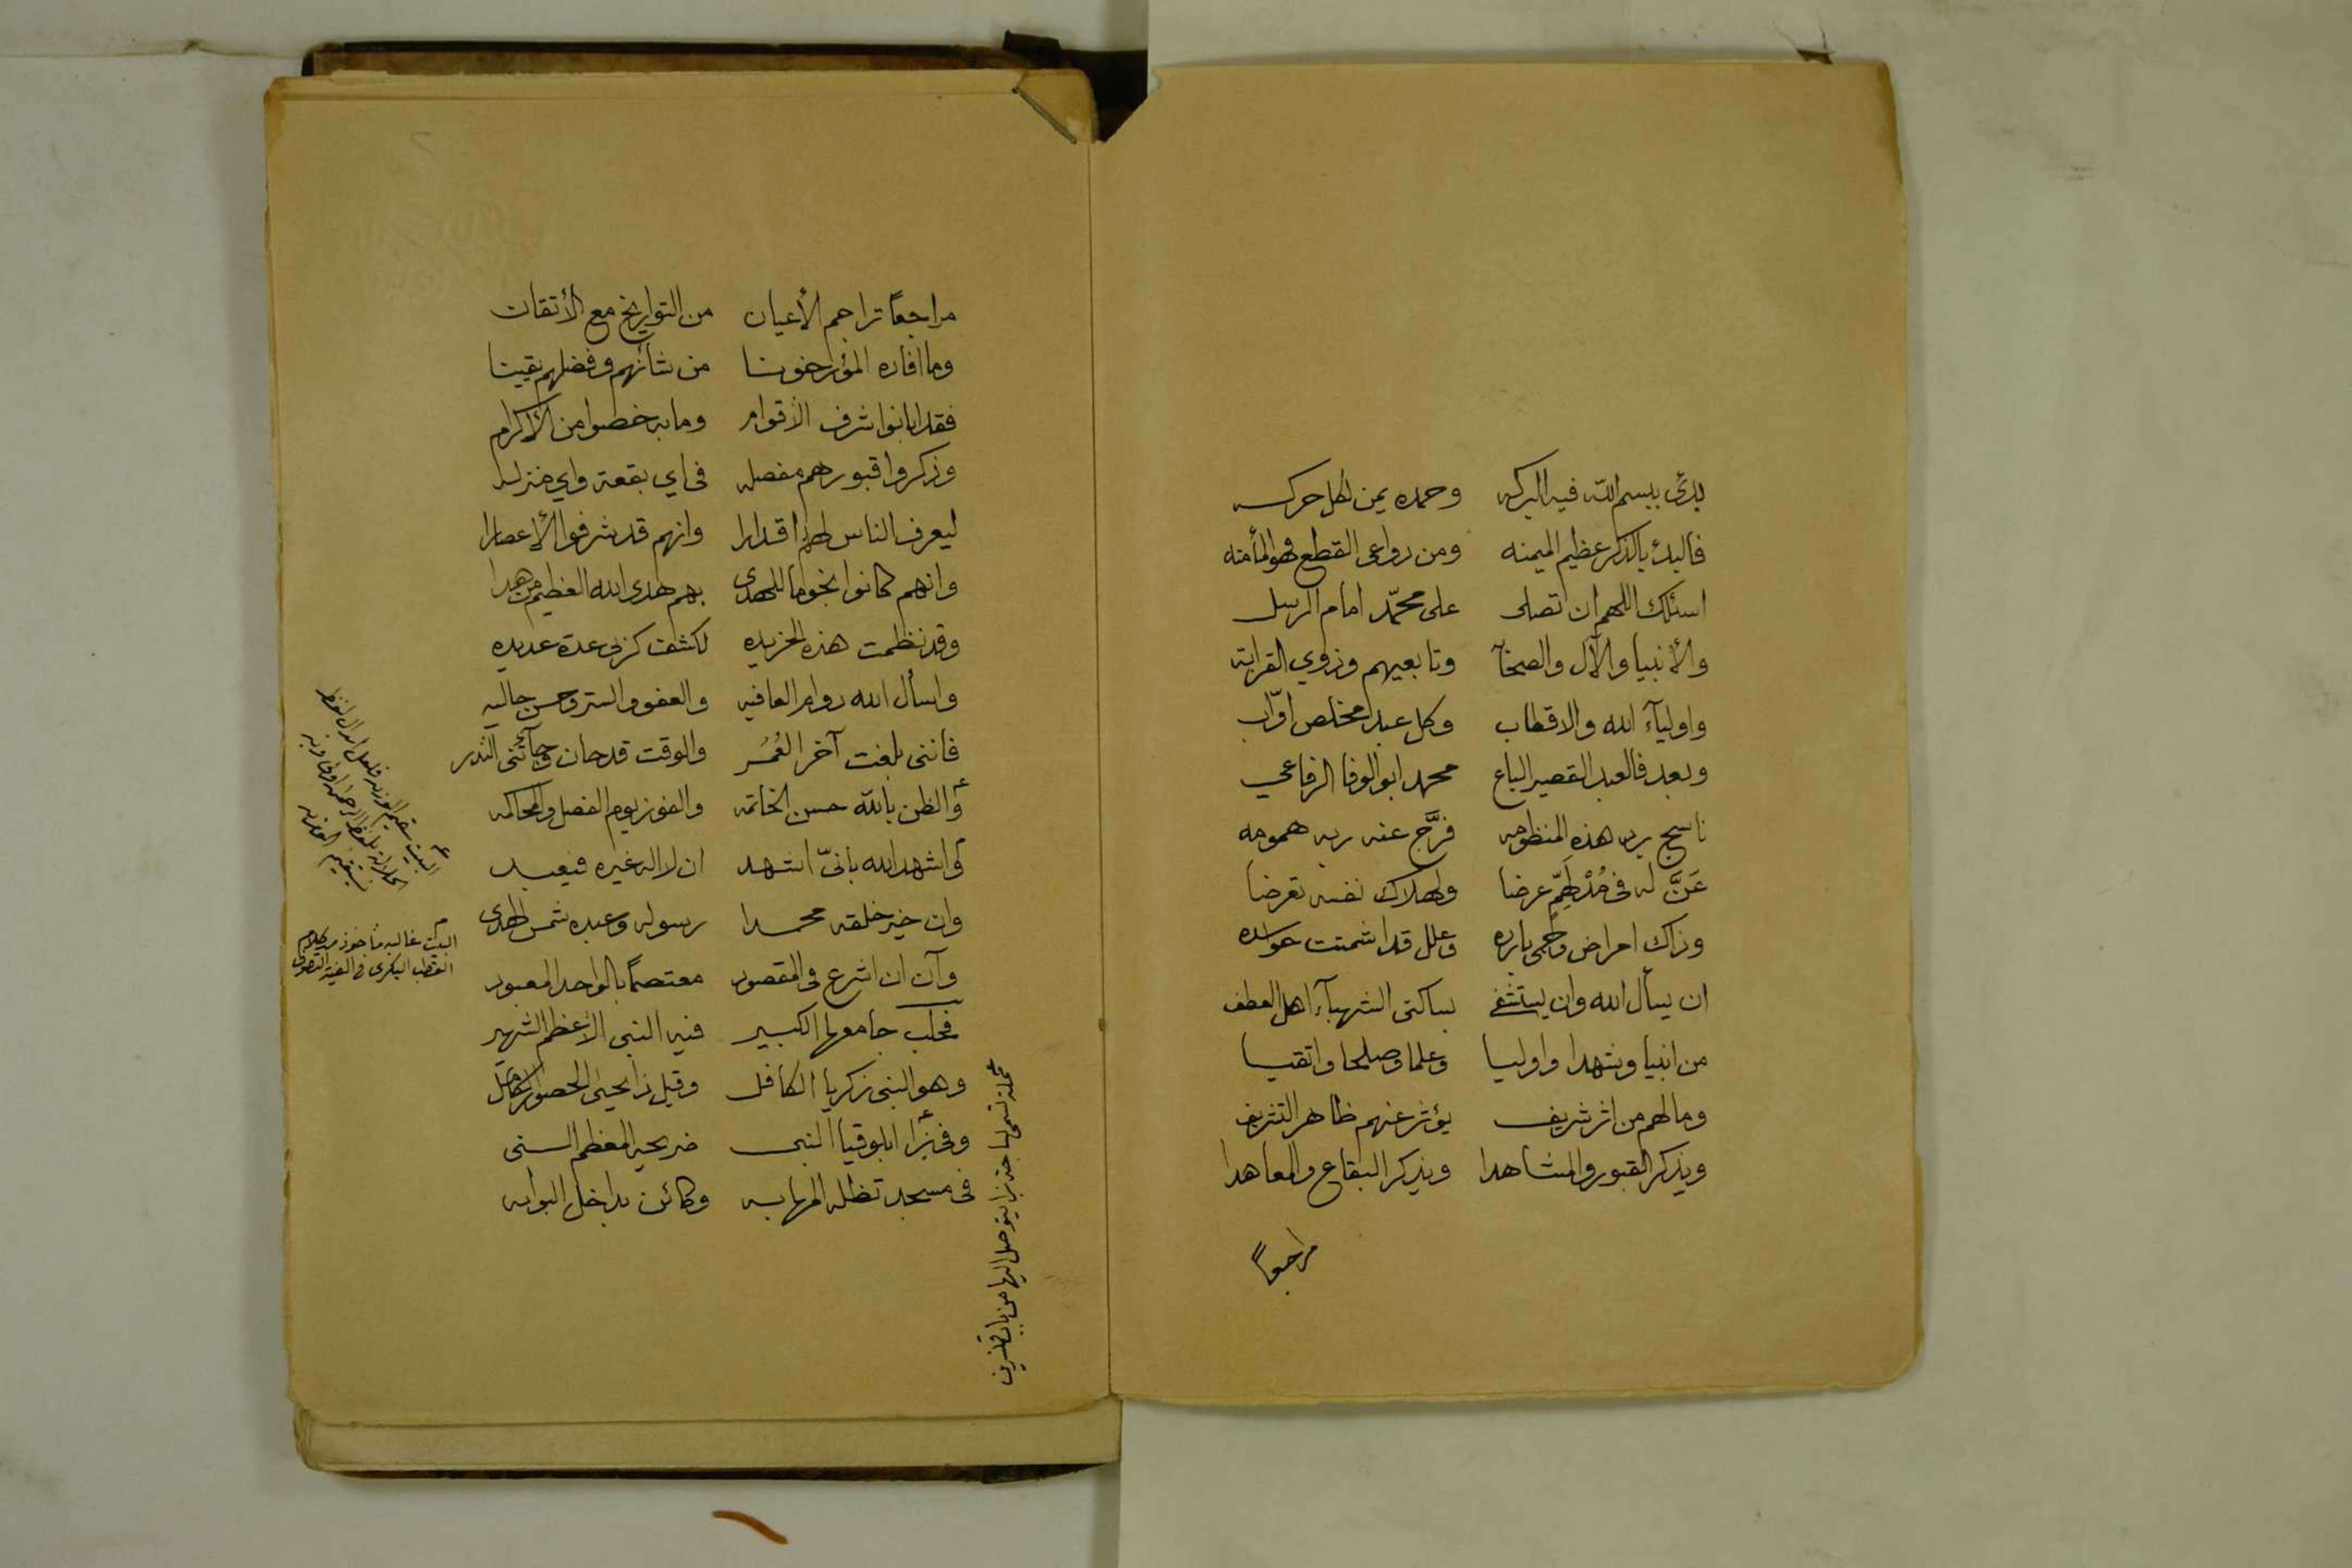 بدئ ببسم الله فيه البركه وحمده يمن لكل حركه
فالبدئ بالذكر عظيم الميمنه ومن دواعي القطع فهو المأمنه
اسئلك اللهم ان تصلى على محمّد امام الرسل
والأنبيا والآل والصحابة وتابعيهم وذوي القرابة
واوليآء الله والاقطاب وكل عبد مخلص اوّاب
وبعد فالعبد القصير الباع محمد ابو الوفا الرفاعي
ناسج برد هذه المنظومه فرّج عنه ربه همومه
عَنَّ له في مُدْلَهِمّ عرضا ولهلاك نفسه تعرضا
وذاك امراض وحمى بارده وعلل قد اشمتت حواسده
ان يسأل الله وان يستشفى بساكنى الشهبآء اهل العطف
من انبيا وشهدا واوليا وعلما وصلحا واتقيا
وما لهم من اثر شريف يؤثر عنهم ظاهر التشريف
ويذكر القبور والمشاهدا ويذكر البقاع والمعاهدا
مراجعاً
مراجعاً تراجم الأعيان من التواريخ مع الأتقان
وما افاده المؤرخونا من شأنهم وفضلهم يقينا
فقد ابانوا شرف الأقوام وما به خصوا من الأكرام
وذكروا قبورهم مفصله في اي بقعة واي منزله
ليعرف الناس لهم اقدارا وانهم قد شرفوا الأعصارا
وانهم كانوا نجوما للهدى بهم هدى الله العظيم من هدا
وقد نظمت هذه الخريده لكشف كربى عدة عديده
واسأل الله دوام العافيه والعفو والستر وحسن حاليه
فاننى بلغت آخر العُمُر والوقت قد حان وجآئتنى النذر
والظن بالله حسن الخاتمه والفوز يوم الفصل والمحاكمه
واشهد الله بانىّ اشهد ان لا اله غيره فيعبد
وان خير خلقه محمدا رسوله وعبده شمس الهدى
وآن ان اشرع في المقصود معتصماً بالواحد المعبود
فحلب جامعها الكبير فيه النبى الأعظم الشهير
وهو النبى زكريا الكافل وقيل ذا يحيى الحصور الكامل
وفي بزا ابلوقيا النبى ضريحه المعظم السنى
في مسجد تظله المهابه وكائن بداخل البوابه
محلة تسمى ساحة بزا يتوصل اليها من باب قنسرين
البيت غالبه مأخوذ من كلام
القطب البكرى في الفية التصوف